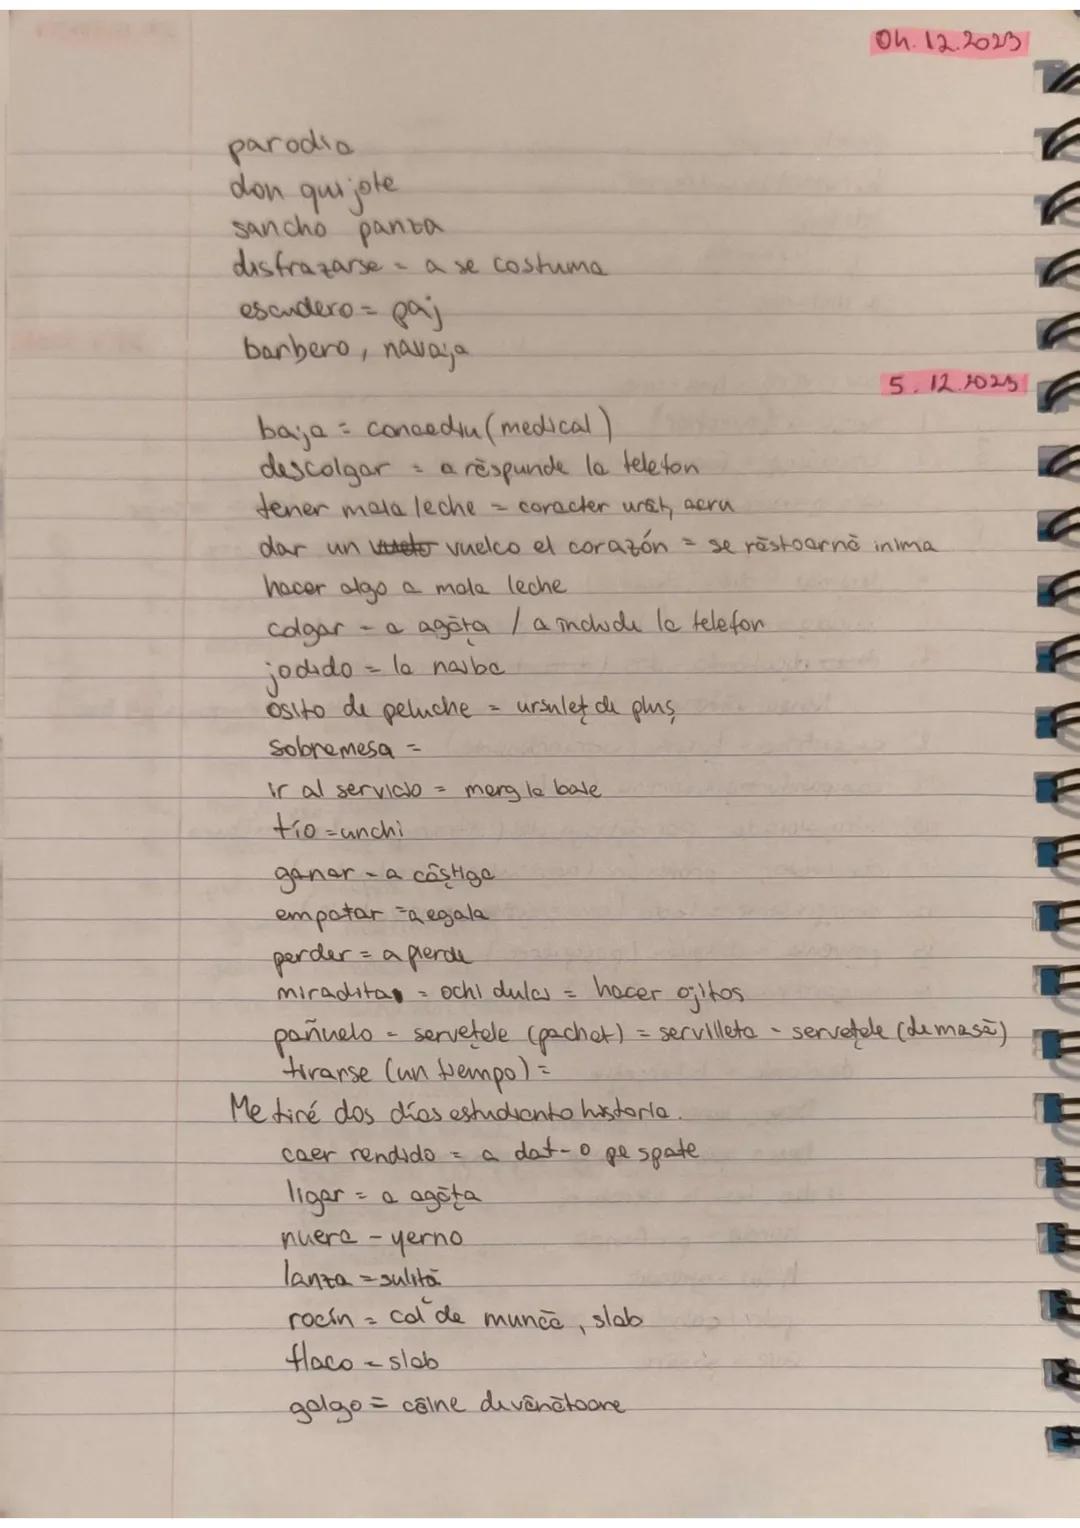 04.12.2023
parodia
don quijote
sancho panza
disfrazarse = a se costuma
escudero = paj
barbero, navaja
5.12.2023
baja = concediu (medical)
descolgar = a răspunde la telefon
tener mala leche = caracter urât, acru
dar un vuelo vuelco el corazón = se răstoarnă inima
hacer algo a mala leche
colgar - a agăța / a închide la telefon
jodido = la naiba
osito de peluche = ursuleț de pluș
sobremesa =
ir al servicio = merg la baie
tío = unchi
ganar - a câștiga
empatar = a egala
perder = a pierde
miradita = ochi dulci = hacer ojitos
pañuelo - servețele (pachet) = servilleta - servețele (de masă)
tirarse (un tiempo) =
Me tiré dos días estudiando historia.
caer rendido = a dat-o pe spate
ligar = a agăța
nuera - yerno
lanza = suliță
rocín = cal de muncă, slab
flaco - slab
galgo = câine de vânătoare